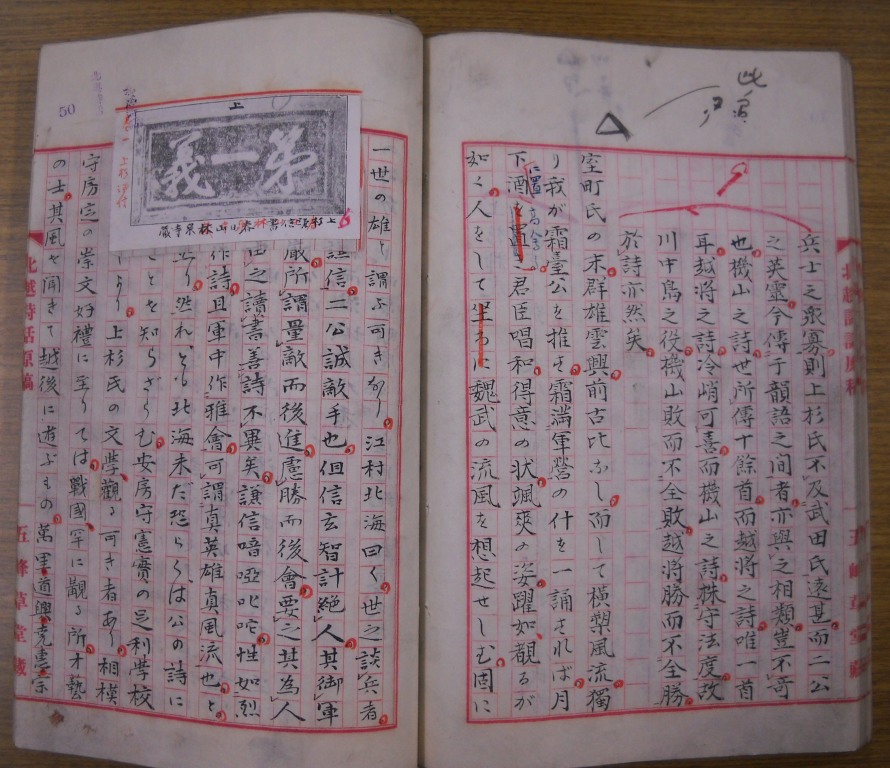 此
兵士之衆寡則上杉氏不及武田氏遠甚而二公
之英靈今傳于韻語之间者亦與之相類豈不可
也機山之詩世所傳十餘首而越將之詩唯一首
耳越將之詩冷峭可喜而機山之詩株守法度故
川中島之役機山敗而不全敗越將勝而不全勝
於詩亦然矣
室町氏の末群雄雲興前古比なし而して横槊風流獨
り我が霜臺公を推す霜満軍營の什を一誦されば月
下酒を置 君臣唱和得意の状颯爽の姿躍如觀るが
に置
如く人をして 魏武の流風を想起せしむ固に
50
一世の雄と謂ふ可きなり江村北海曰く世之談兵者
謙信二公誠敵手也但信玄智計絶人其御軍
嚴所謂量敵而後進慮勝而後會要之其為人
由之讀書善詩不異矣謙信喑啞叱咤性如烈
作詩且軍中作雅會可謂真英雄真風流也と
然れども北海未だ恐らくは公の詩に
ことを知らざらむ安房守憲實の足利學校
より上杉氏の文學觀る可き者あり相模
守房定の崇文好禮に至りては戰國罕に觀る所才藝
の士其風を聞きて越後に遊ぶもの萬里道興堯惠宗
上
第一義
林泉寺蔵
北越詩話原稿
五峰草堂蔵
北越詩話原稿
五峰草堂蔵